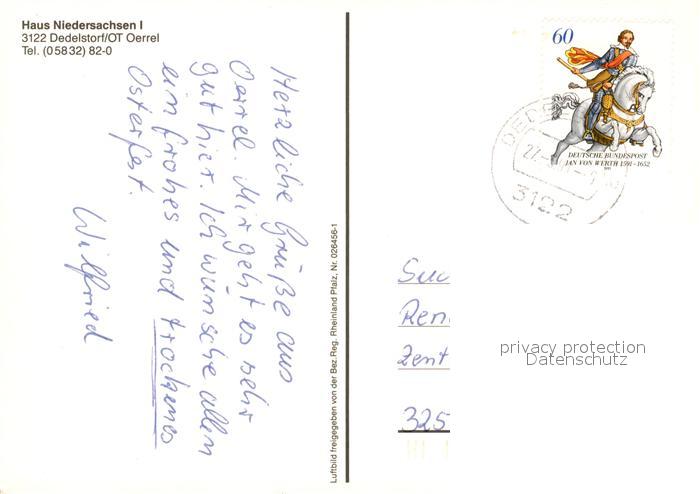 Haus Niedersachsen I
3122 Dedelstorf/OT Oerrel
Tel. (05832) 82-0
Herzliche Grüße aus
Oerrel. Mir geht es sehr
gut hier. Ich wünsche allen
ein frohes und trockenes
Osterfest.
Wilfried
Luftbild freigegeben von der Bez.Reg. Rheinland Pfalz, Nr. 026456-1
60
DEUTSCHE BUNDESPOST
JAN VON WERTH 1591-1652
1991
3122
Suc
Ren
Zent
325
privacy protection
Datenschutz